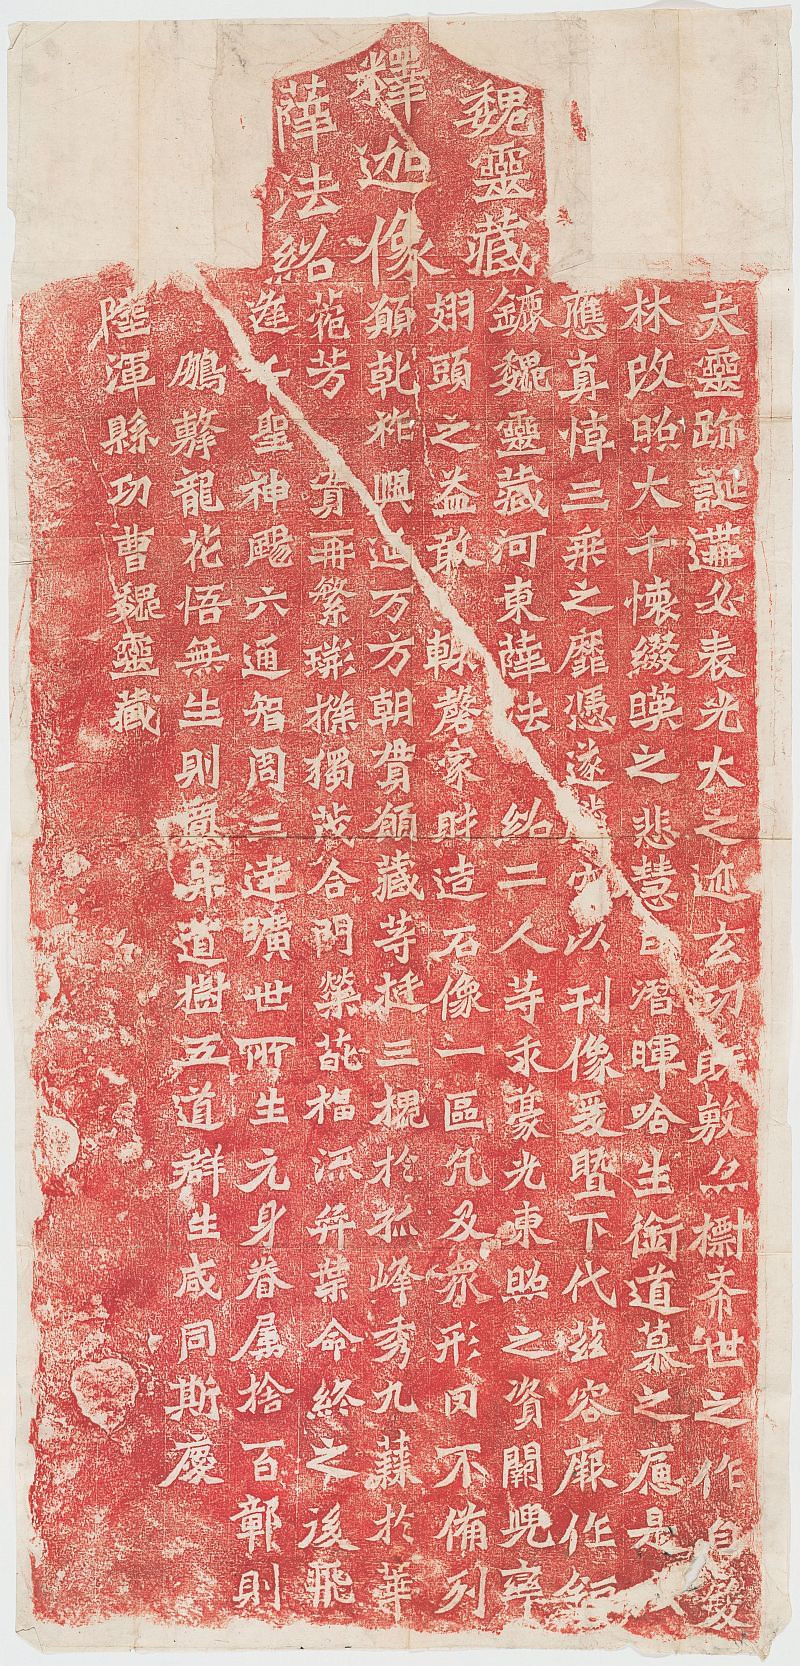 魏靈藏
釋迦像
薛法紹
夫靈跡誕遘必表光大之迹玄功既敷亦標希世之作自雙
林改照大千懷綴暎之悲慧日潛暉哈生銜道慕之痛是
應真悼三乘之靡憑遂騰空以刊像爰暨下代茲容厥作鉅
鏕魏靈藏河東薛法紹二人等求豪光東照之資闕兜率
翅頭之益敢輒罄家財造石像一區凡及眾形罔不備列
願乾祚興延万方朝貫願藏等挺三槐於孤峰秀九蕀於華
菀芳實再繁荊條獨茂合門榮葩福流弈葉命終之後飛
逢千聖神颺六通智周三達曠世所生元身眷屬捨百鄣則
鵬擊龍花悟無生則鳳昇道樹五道群生咸同斯慶
陸渾縣功曹魏靈藏